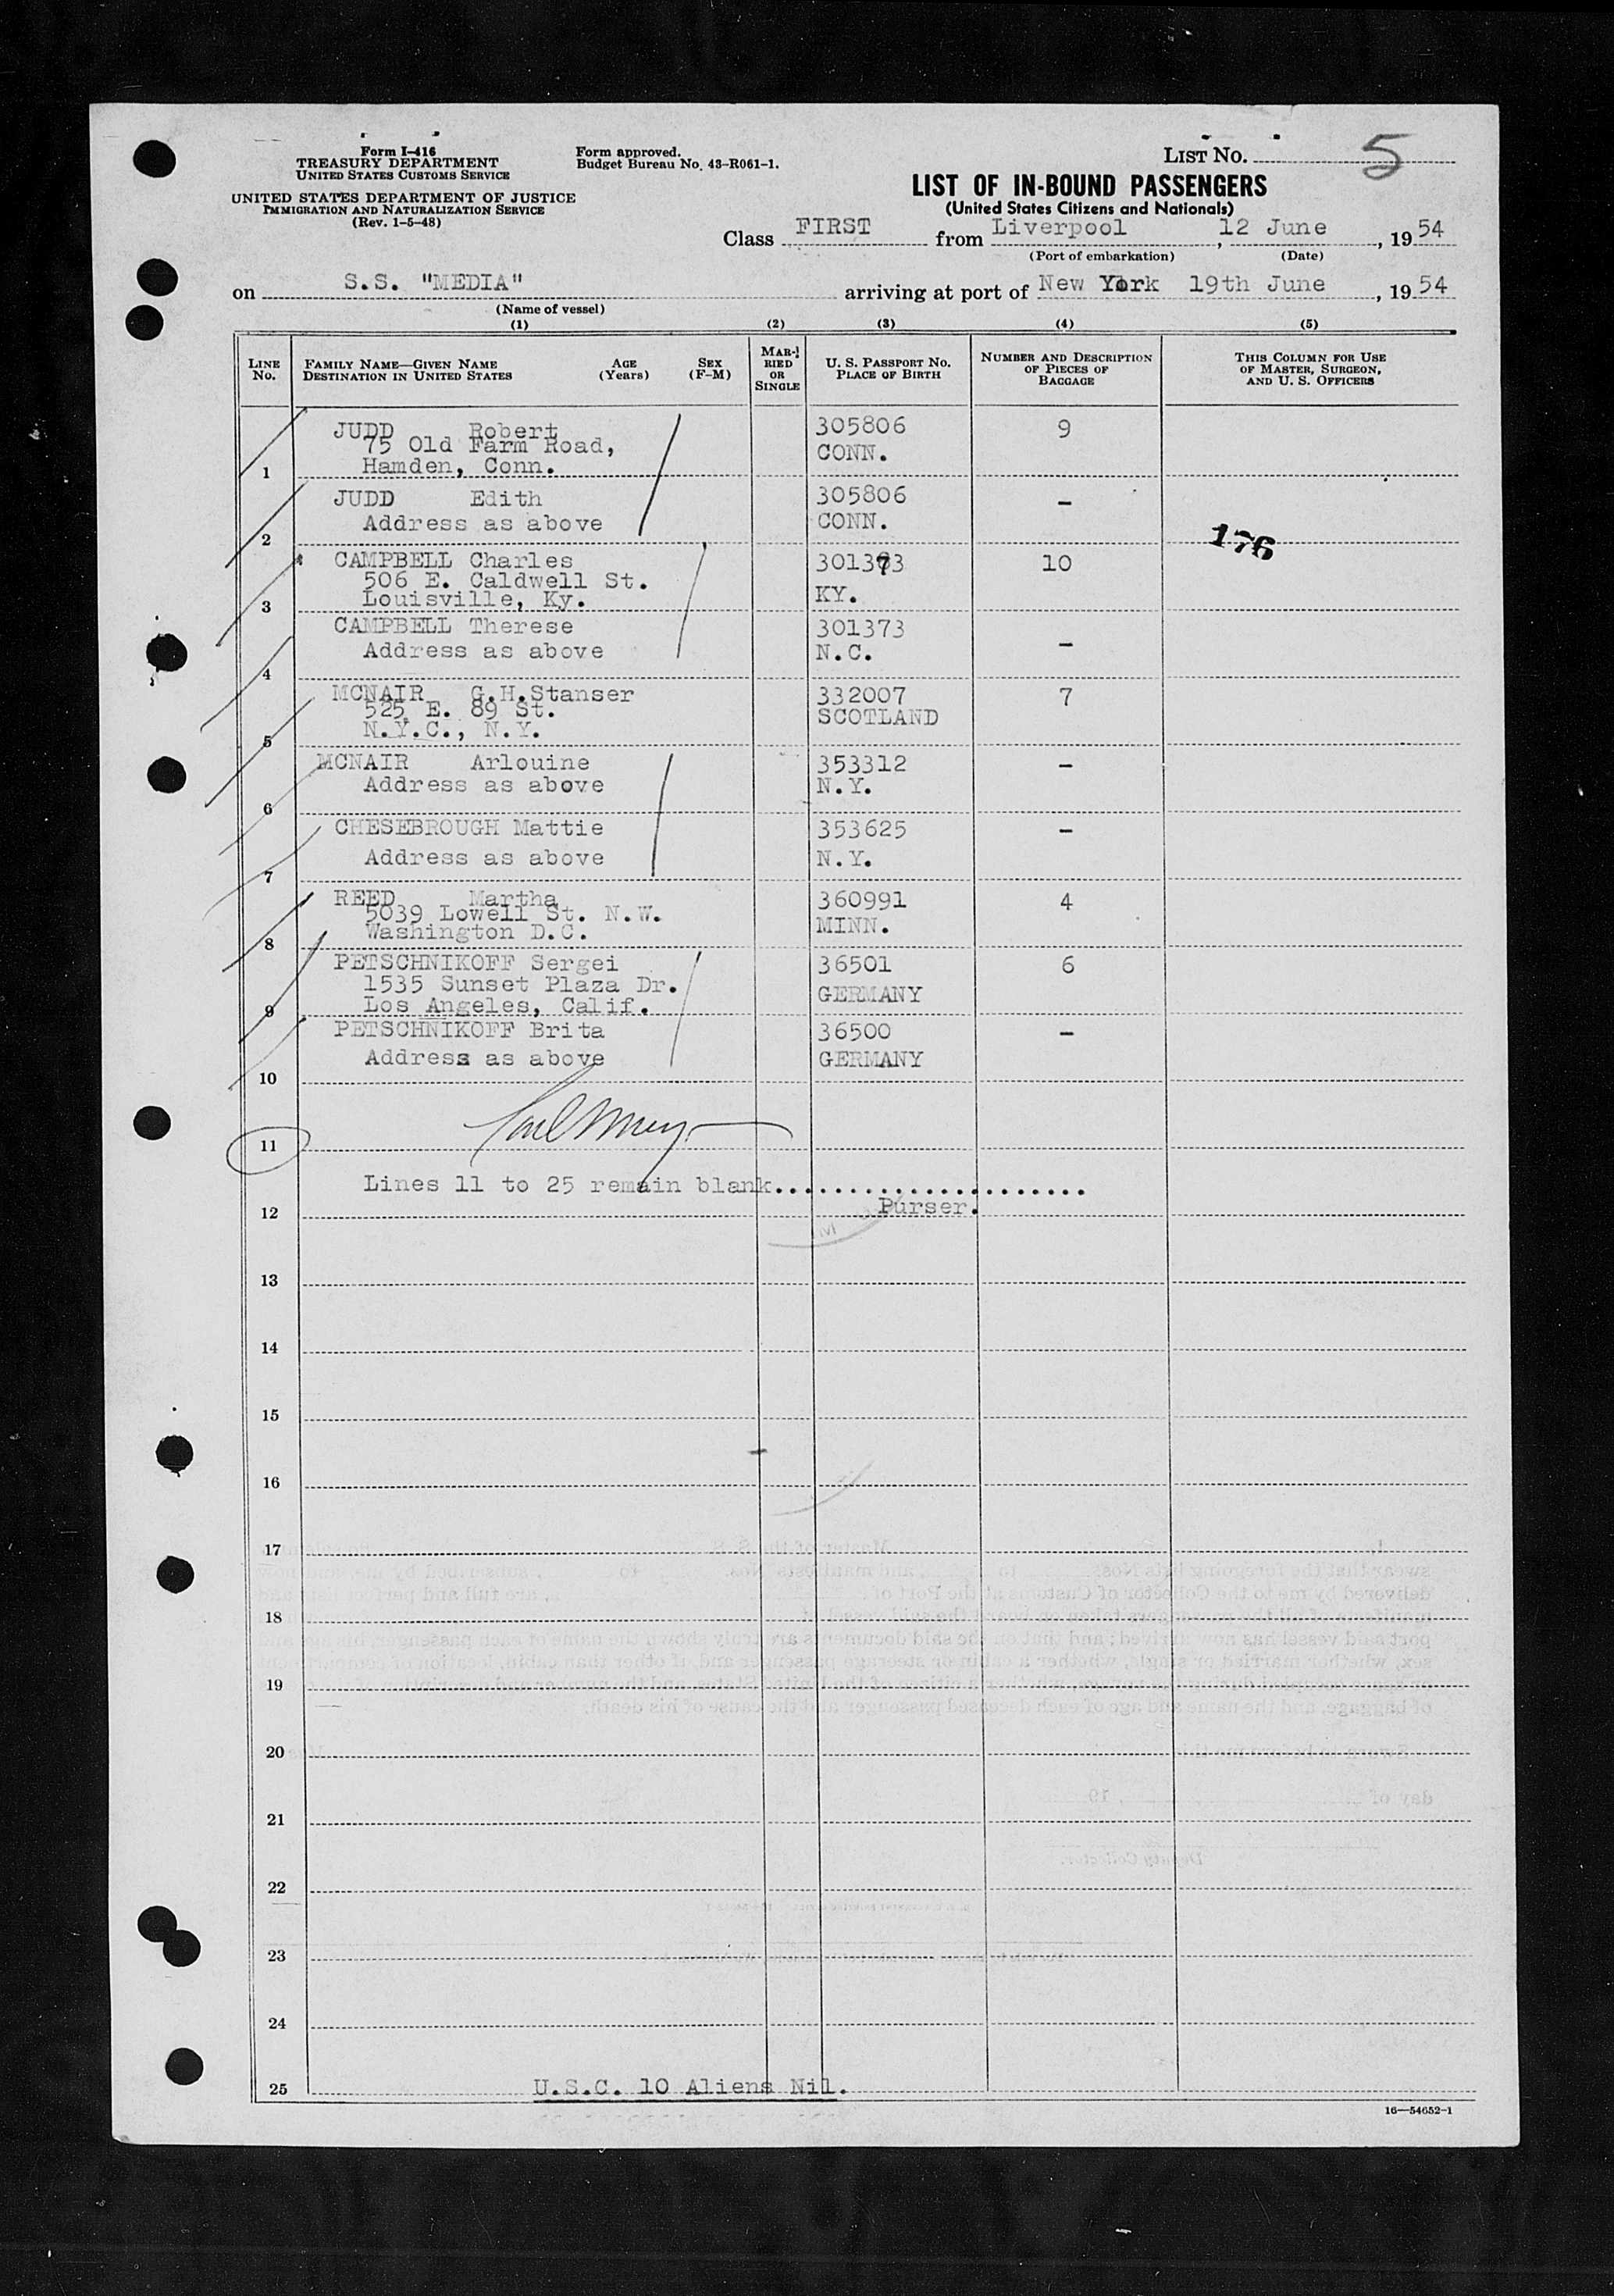 Form I-416
TREASURY DEPARTMENT
UNITED STATES CUSTOMS SERVICE
UNITED STATES DEPARTMENT OF JUSTICE
IMMIGRATION AND NATURALIZATION SERVICE
(Rev. 1-5-48)
Form approved.
Budget Bureau No. 43-R061-1.
LIST NO. 5
LIST OF IN-BOUND PASSENGERS
(United States Citizens and Nationals)
Class FIRST from Liverpool, 12 June, 1954
(Port of embarkation) (Date)
on S.S. "MEDIA" arriving at port of New York 19th June, 1954
(Name of vessel)
(1) (2) (3) (4) (5)
LINE No. FAMILY NAME—GIVEN NAME DESTINATION IN UNITED STATES AGE (Years) SEX (F-M) MARRIED OR SINGLE U. S. PASSPORT No. PLACE OF BIRTH NUMBER AND DESCRIPTION OF PIECES OF BAGGAGE THIS COLUMN FOR USE OF MASTER, SURGEON, AND U. S. OFFICERS
JUDD Robert 305806 9
75 Old Farm Road, CONN.
1 Hamden, Conn.
JUDD Edith 305806 -
Address as above CONN.
2
176
CAMPBELL Charles 301373 10
506 E. Caldwell St.
3 Louisville, Ky. KY.
CAMPBELL Therese 301373 -
Address as above N.C.
4
MCNAIR G.H.Stanser 332007 7
525 E. 89 St. SCOTLAND
5 N.Y.C., N.Y.
MCNAIR Arlouine 353312 -
Address as above N.Y.
6
CHESEBROUGH Mattie 353625 -
Address as above N.Y.
7
REED Martha 360991 4
5039 Lowell St. N.W. MINN.
8 Washington D.C.
PETSCHNIKOFF Sergei 36501 6
1535 Sunset Plaza Dr. GERMANY
9 Los Angeles, Calif.
PETSCHNIKOFF Brita 36500 -
Address as above GERMANY
10
11
Lines 11 to 25 remain blank.....................
12 Purser.
13
14
15
16
17
18
19
20
21
22
23
24
25 U.S.C. 10 Aliens Nil.
16—54652-1